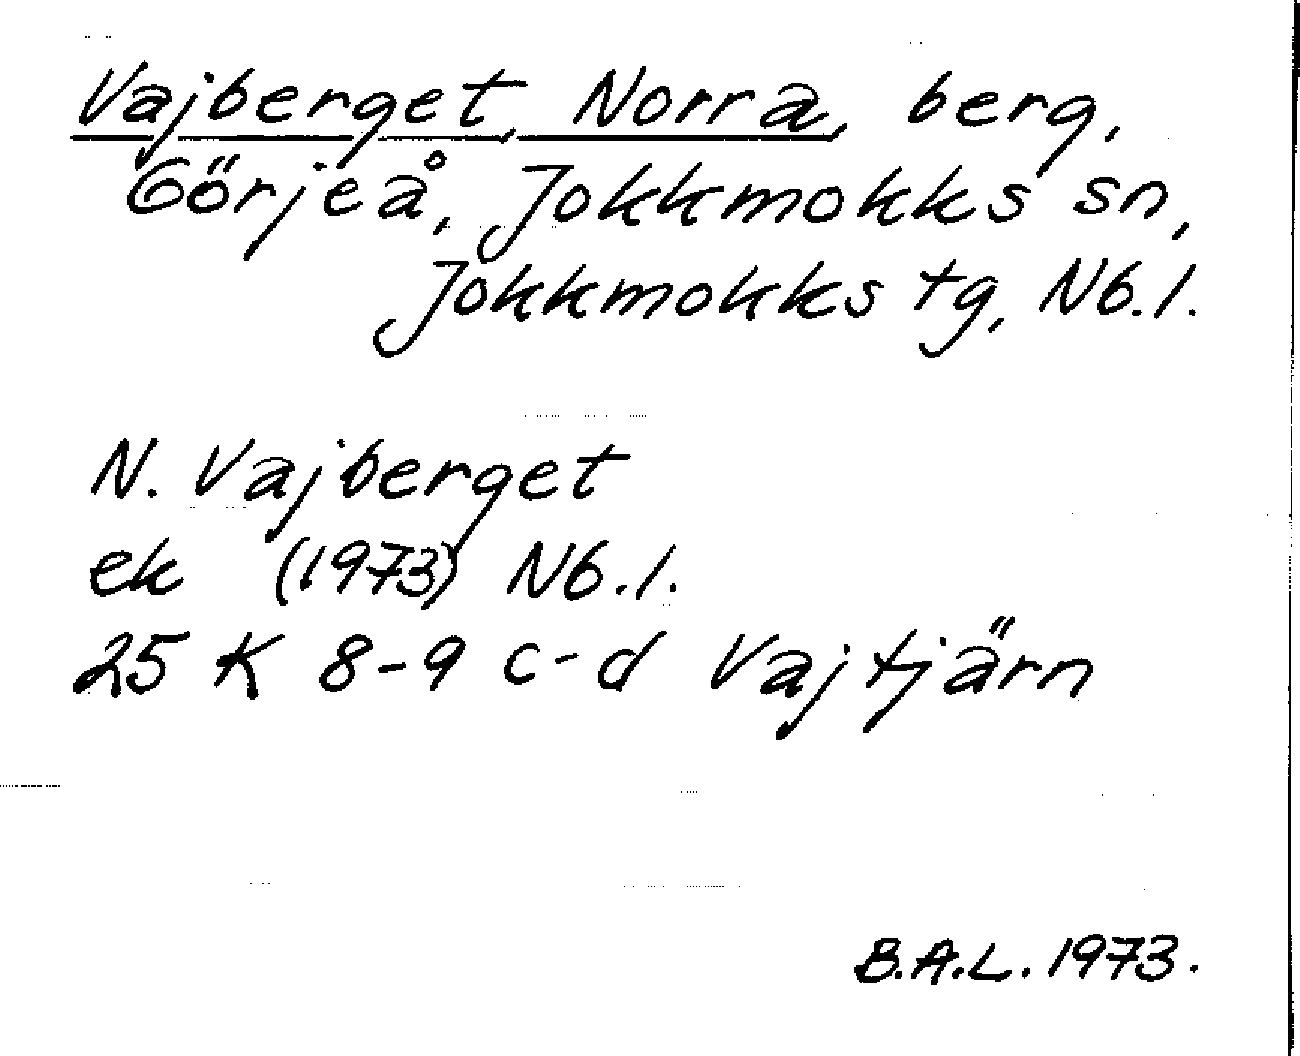 Vajberget, Norra, berg,
Görjeå, Jokkmokks sn,
Jokkmokks tg, Nb.l.
N. Vajberget
ek (1973) Nb.l.
25 K 8-9 c-d Vajtjärn
B.A.L. 1973.